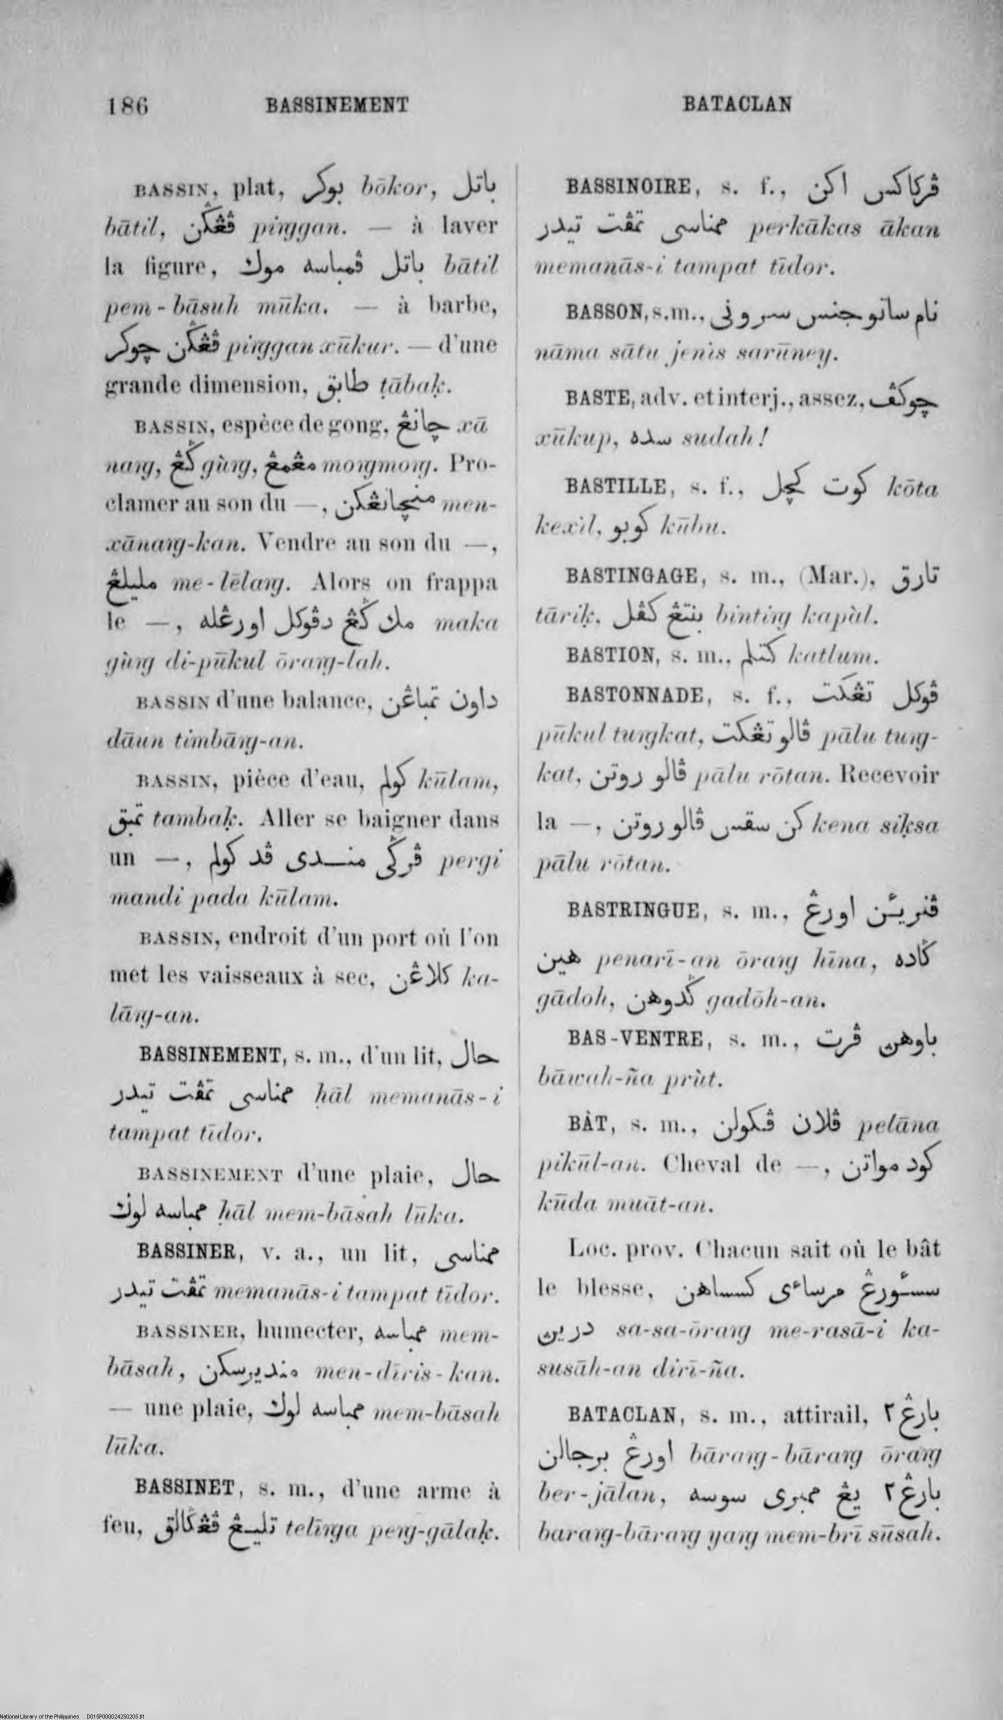 186 BASSINEMENT BATACLAN
BASSIN, plat, بوكر bōkor, باتل
bātil, ڤڠݢن piŋggan. — à laver
la figure, باتل ڤمباسه موك bātil
pem-bāsuh mūka. — à barbe,
ڤڠݢن چوكر piŋggan xūkur. — d'une
grande dimension, طابق ṭābaḳ.
BASSIN, espèce de gong, چانڠ xā
naŋ, ݢڠ gùŋ, مڠمڠ moŋmoŋ. Pro-
clamer au son du —, منچانڠكن men-
xānaŋ-kan. Vendre au son du —,
مليلڠ me-lēlaŋ. Alors on frappa
le —, مك ݢڠ دڤوكل اورڠله maka
gùŋ di-pūkul ōraŋ-lah.
BASSIN d'une balance, داون تمباڠن
dāun timbāŋ-an.
BASSIN, pièce d'eau, كولم kūlam,
تمبق tambaḳ. Aller se baigner dans
un —, ڤرݢي مندى ڤد كولم pergi
mandi pada kūlam.
BASSIN, endroit d'un port où l'on
met les vaisseaux à sec, كلاڠن ka-
lāŋ-an.
BASSINEMENT, s. m., d'un lit, حال
ممناسى تمڤت تيدر ḥāl memanās-i
tampat tīdor.
BASSINEMENT d'une plaie, حال
ممباسه لوك ḥāl mem-bāsah lūka.
BASSINER, v. a., un lit, ممناسى
تمڤت تيدر memanās-i tampat tīdor.
BASSINER, humecter, ممباسه mem-
bāsah, منديرسكن men-dīris-kan.
— une plaie, ممباسه لوك mem-bāsah
lūka.
BASSINET, s. m., d'une arme à
feu, تليڠ ڤڠݢالق telīŋa peŋ-gālaḳ.
BASSINOIRE, s. f., ڤركاكس اكن
ممناسى تمڤت تيدر perkākas ākan
memanās-i tampat tīdor.
BASSON, s.m., نام ساتو جنس سرونى
nāma sātu jenis sarūney.
BASTE, adv. et interj., assez, چوكڤ
xūkup, سده sudah!
BASTILLE, s. f., كوت كچل kōta
kexil, كوبو kūbu.
BASTINGAGE, s. m., (Mar.), تارق
tāriḳ, بنتڠ كڤل bintiŋ kapàl.
BASTION, s. m., كتلم katlum.
BASTONNADE, s. f., ڤوكل تڠكت
pūkul tuŋkat, ڤالو تڠكت pālu tuŋ-
kat, ڤالو روتن pālu rōtan. Recevoir
la —, كن سقس ڤالو روتن kena siḳsa
pālu rōtan.
BASTRINGUE, s. m., ڤنريئن اورڠ
هين penarī-an ōraŋ hīna, ݢاده
gādoh, ݢدوهن gadōh-an.
BAS-VENTRE, s. m., باوهن ڤرت
bāwah-ña prùt.
BÂT, s. m., ڤلان ڤكولن pelāna
pikūl-an. Cheval de —, كود مواتن
kūda muāt-an.
Loc. prov. Chacun sait où le bât
le blesse, سسئورڠ مرساءى كسساهن
درين sa-sa-ōraŋ me-rasā-i ka-
susāh-an dirī-ña.
BATACLAN, s. m., attirail, بارڠ٢
اورڠ برجالن bāraŋ-bāraŋ ōraŋ
ber-jālan, بارڠ٢ يڠ ممبرى سوسه
baraŋ-bāraŋ yaŋ mem-brī sūsah.
National Library of the Philippines